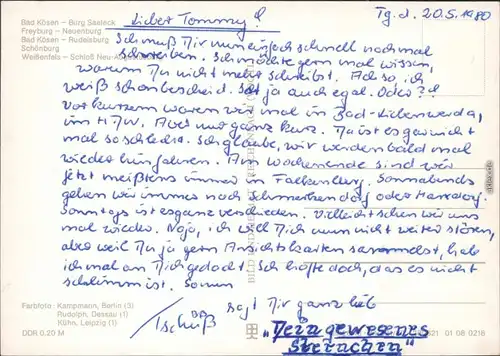 Bad Kösen – Burg Saaleck
Freyburg – Neuenburg
Bad Kösen – Rudelsburg
Schönburg
Weißenfels – Schloß Neu-Augustusburg
Lieber Tommy!
Tg.d. 20.5.1980
Ich muß Dir nun einfach schnell noch mal
schreiben. Ich möchte gern mal wissen,
warum Du nicht mehr schreibst. Also ich
weiß schon bescheid. Ist ja auch egal. Oder??
Vor kurzem waren wir mal in Bad-Liebenwerda,
im HdW. Aber nur ganz kurz. Da ist es gar nicht
mal so schlecht. Ich glaube, wir werden bald mal
wieder hinfahren. Am Wochenende sind wir
jetzt meistens immer in Falkenberg. Sonnabends
gehen wir immer nach Schmerkendorf oder
Sonntags ist es ganz verschieden. Vielleicht sehen wir uns
mal wieder. Naja, ich will Dich nun nicht weiter stören,
aber weil Du ja gern Ansichtskarten sammelst, hab
ich mal an Dich gedacht. Ich hoffe doch, das es nicht
schlimm ist.
sagt Dir ganz lieb
Tschüß
"Dein gewesenes
Sternchen"
Farbfoto: Kampmann, Berlin (3)
Rudolph, Dessau (1)
Kühn, Leipzig (1)
DDR 0,20 M
01 08 0218